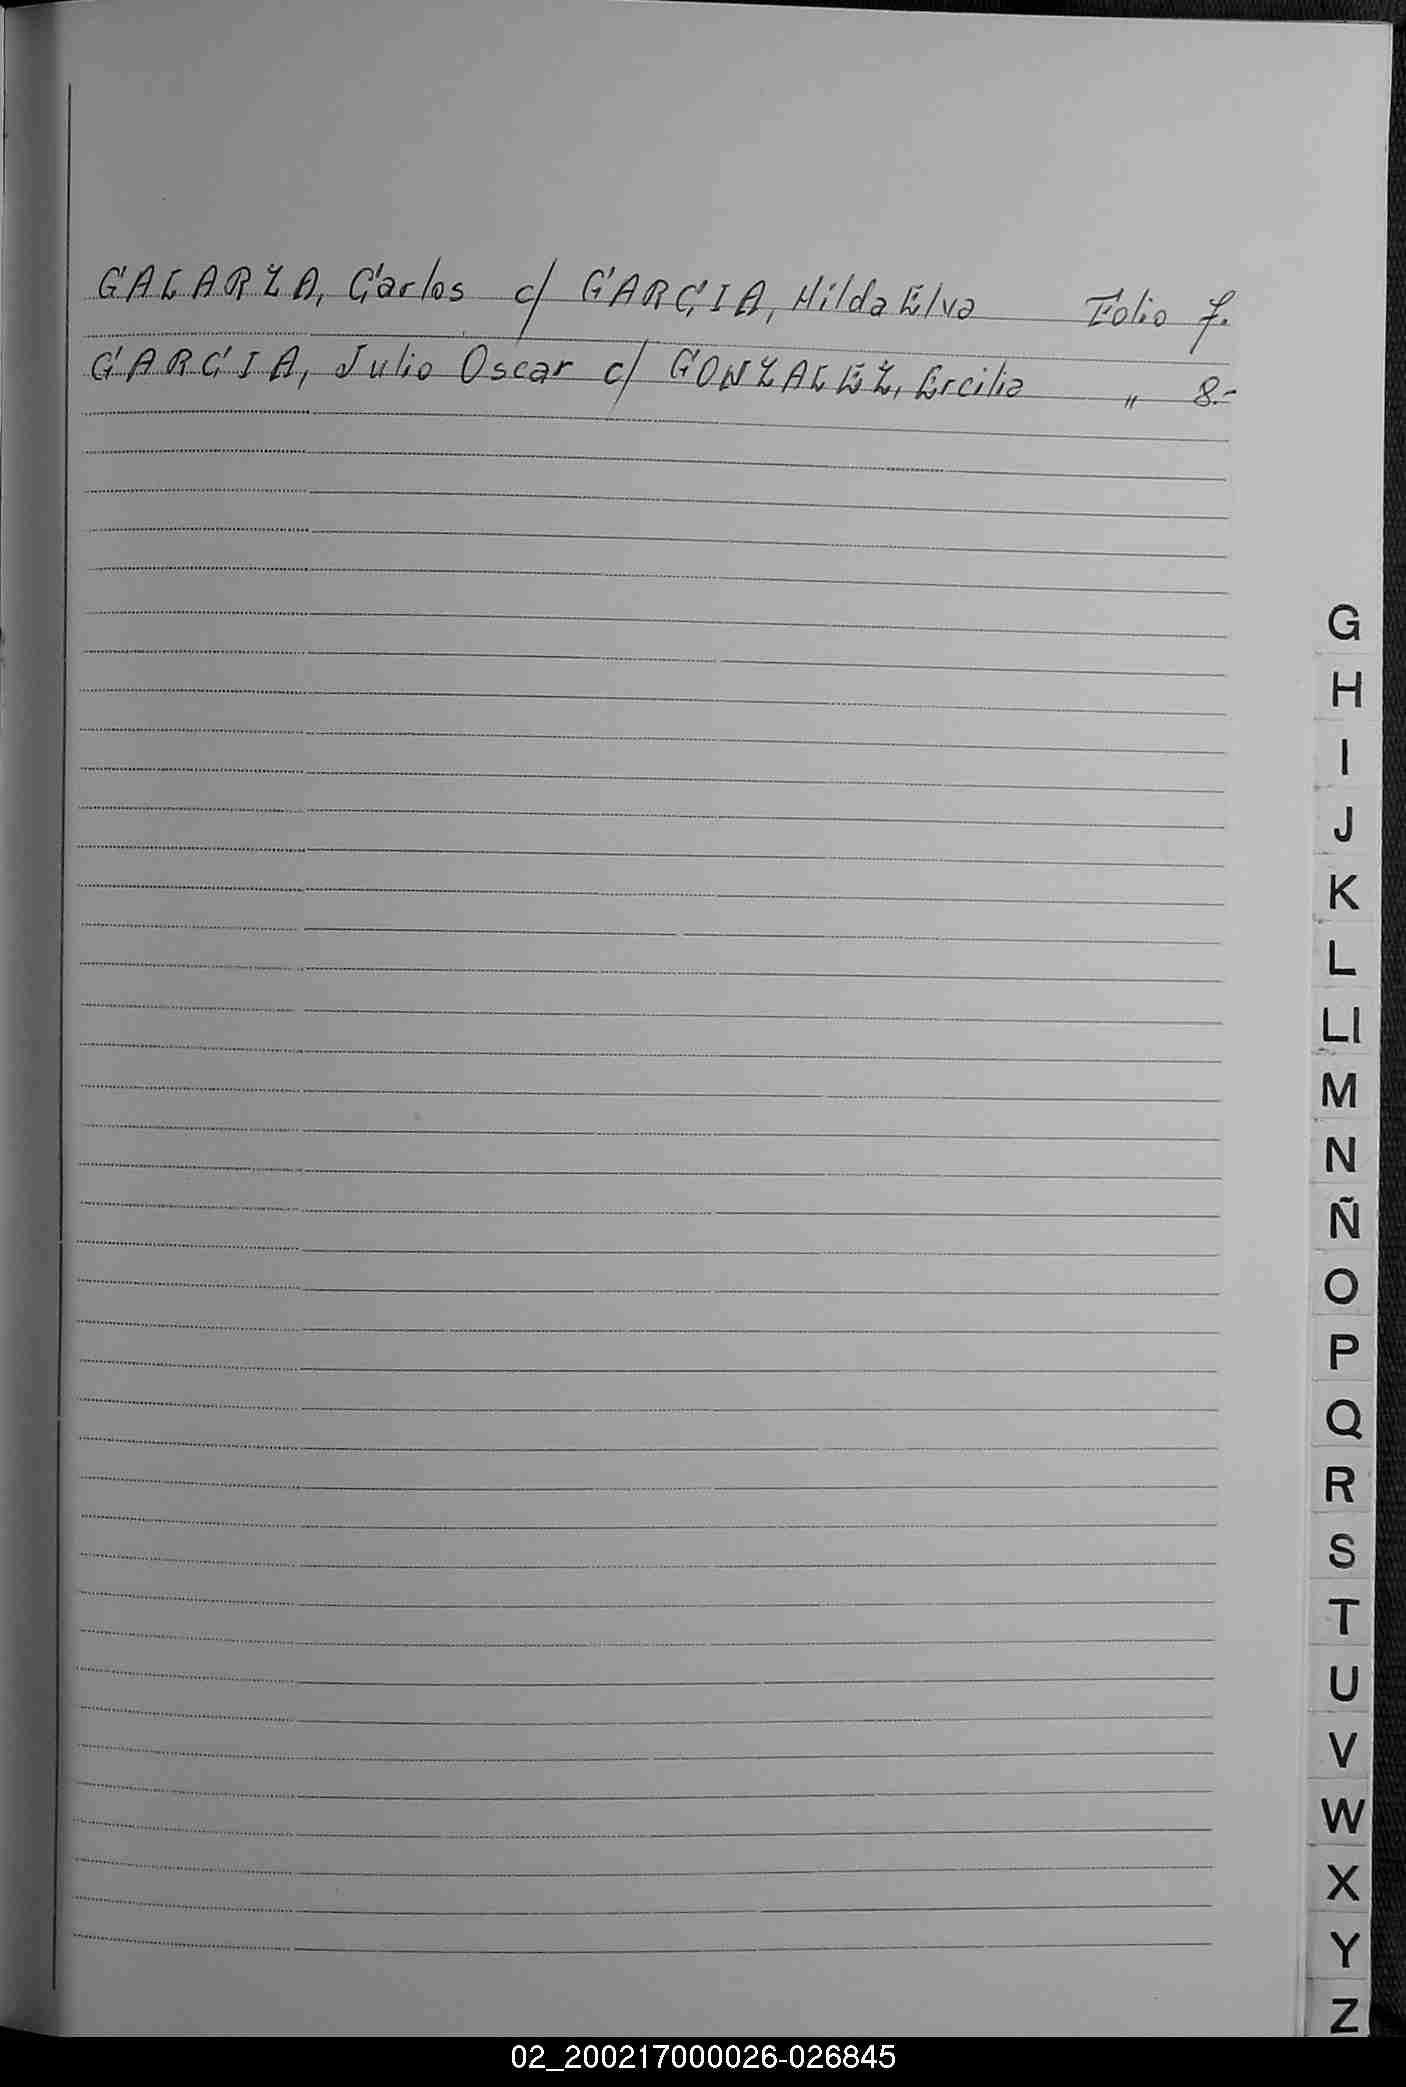 GALARZA, Carlos c/ GARCIA, Hilda Elva Folio 7.
GARCIA, Julio Oscar c/ GONZALEZ, Ercilia " 8.-
G
H
I
J
K
L
Ll
M
N
Ñ
O
P
Q
R
S
T
U
V
W
X
Y
Z
02_200217000026-026845